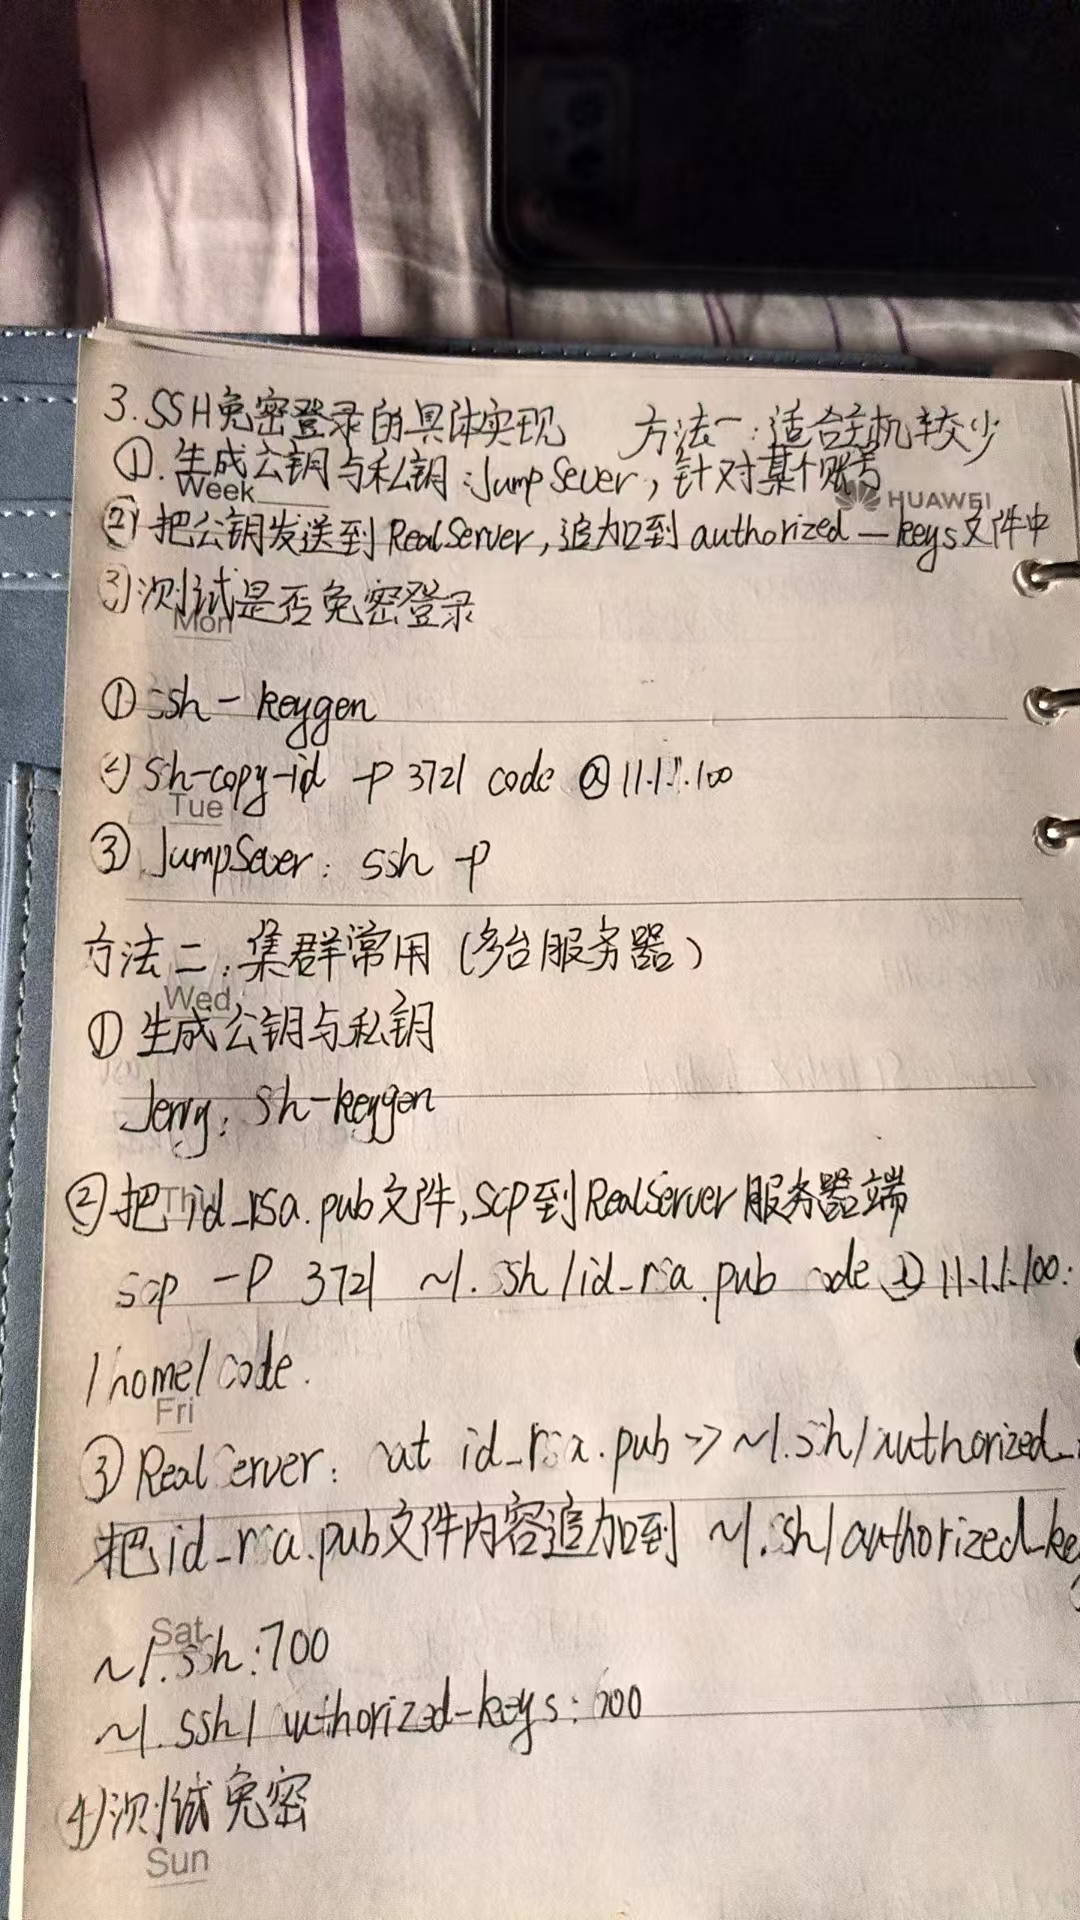 3.SSH免密登录的具体实现 方法一:适合主机较少
①.生成公钥与私钥:JumpSever,针对某个账号
Week
HUAWEI
②把公钥发送到RealServer,追加到authorized_keys文件中
③测试是否免密登录
Mon
①ssh-keygen
②ssh-copy-id -p 3721 code@11.1.1.100
Tue
③JumpSever: ssh -p
方法二:集群常用(多台服务器)
Wed
①生成公钥与私钥
Jerry: sh-keygen
②把id_rsa.pub文件,scp到RealServer服务器端
Thu
scp -P 3721 ~/.ssh/id_rsa.pub code@11.1.1.100:
/home/code.
Fri
③RealServer: cat id_rsa.pub >> ~/.ssh/authorized_
把id_rsa.pub文件内容追加到 ~/.ssh/authorized_ke
Sat
~/.ssh:700
~/.ssh/authorized-keys:600
④测试免密
Sun